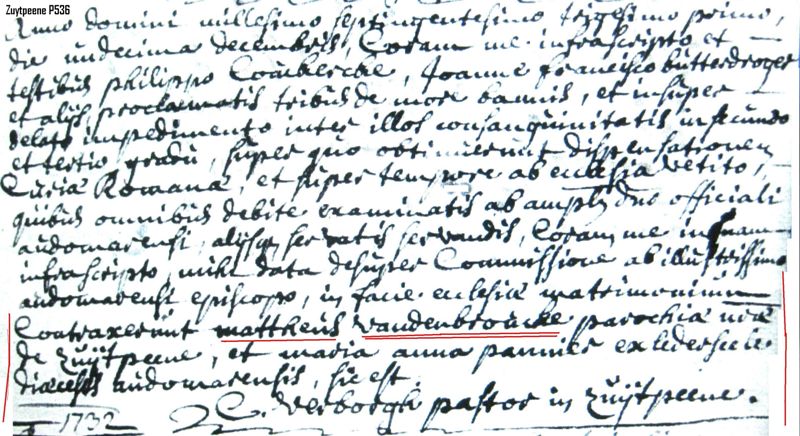 Zuytpeene P536
Anno domini millesimo septingentesimo trigesimo primo,
die undecima decembris, Coram me infrascripto et
testibus philippo Coubercke, Joanne francisco butterdroger
et alijs, proclamatis tribus de more bannis, et insuper
delato impedimento inter illos consanguinitatis in secundo
et tertio gradu, super quo obtinuerunt dispensationem
Curia Romana, et super tempore ab ecclesia vetito,
quibus omnibus debite examinatis ab ampl dno officiali
audomarensi, alijsq servatis servandis, Coram me
infrascripto, mihi data desuper Commissione ab illustrissimo
audomarensi episcopo, in facie ecclesiæ matrimonium
Contraxerunt mattheus vandenbroucke parochiæ meæ
de Zuÿtpeene, et maria anna pannier ex lederseele
diœcesis audomarensis, sic est
C. Verborgh pastor in Zuÿtpeene.
1732